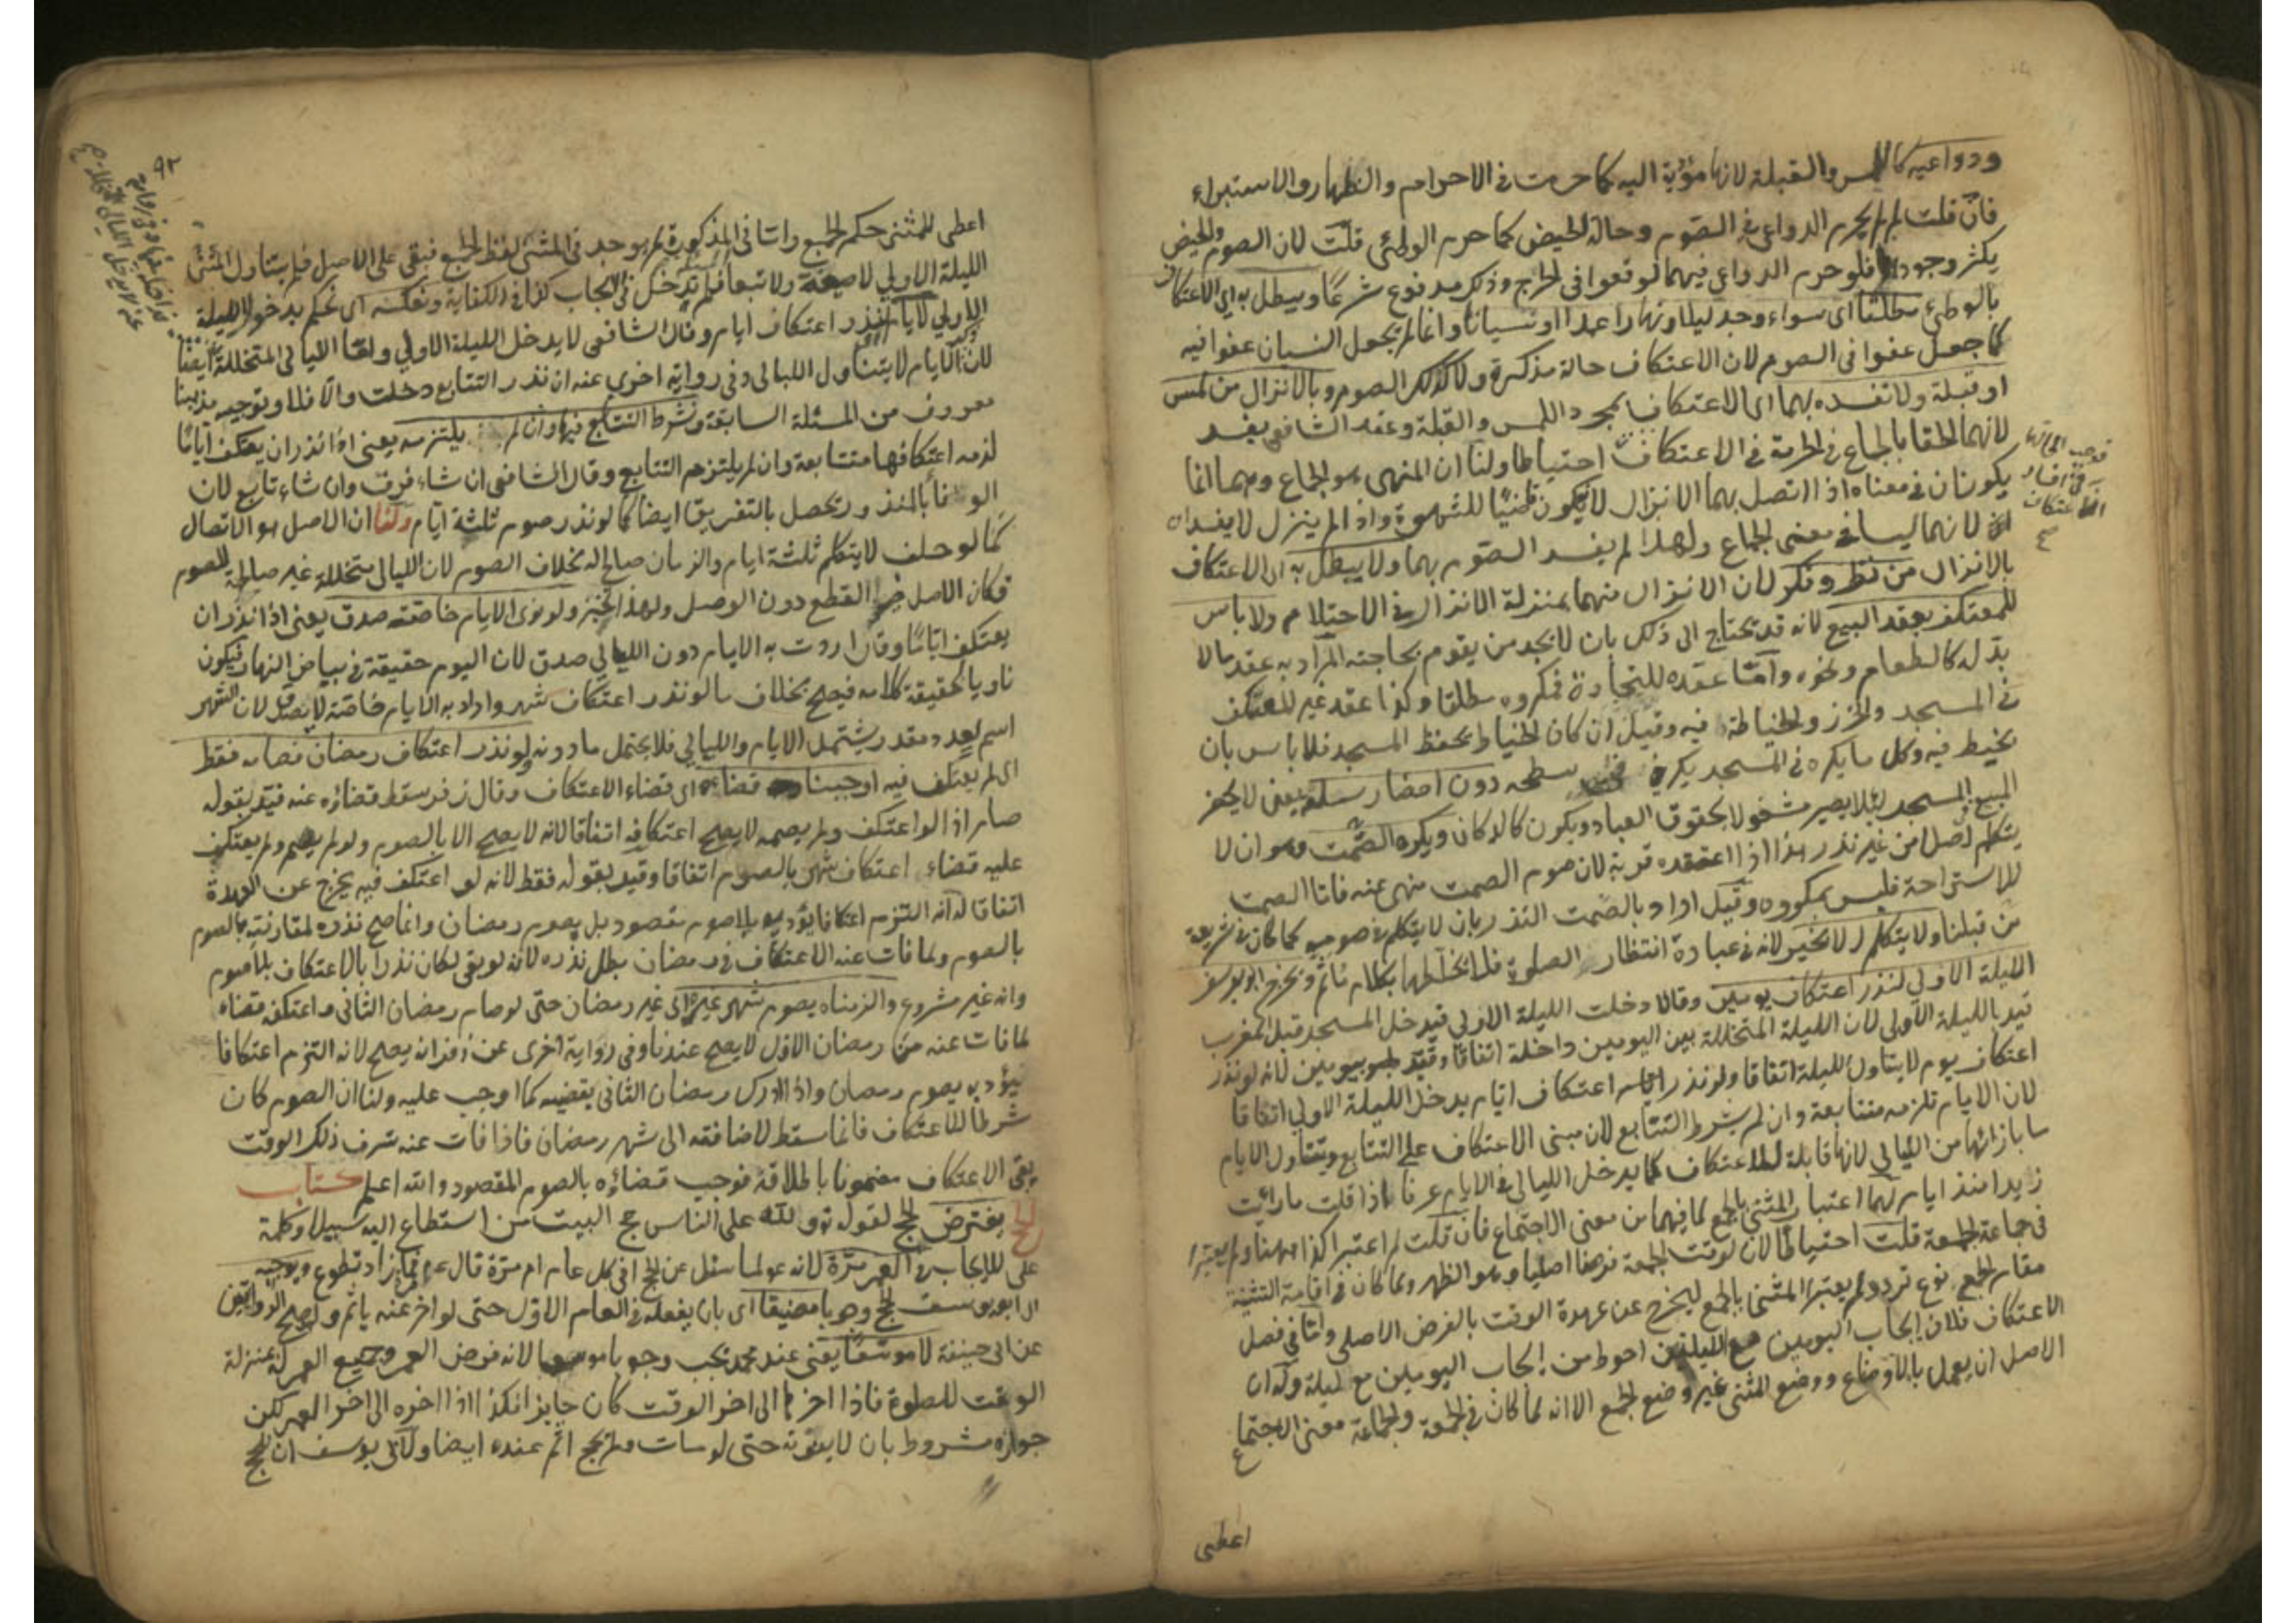 ودواعيه كاللمس والقبلة لانها مؤدية اليه كما حرمت في الاحرام والظهار والاستبراء
فان قلت لم لم يحرم الدواعي في الصوم وحالة الحيض كما حرم الوطئ قلت لان الصوم والحيض
يكثر وجودهما فلو حرم الدواعي فيهما لوقعوا في الحرج وذلك مدفوع شرعا ويبطل به اي الاعتكاف
بالوطئ مطلقا اي سواء وجد ليلا ونهارا عمدا او نسيانا وانما لم يجعل النسيان عفوا فيه
كما جعل عفوا في الصوم لان الاعتكاف حالة مذكرة ولا كذلك الصوم وبالانزال من لمس
او قبلة ولا نفسده بهما اي الاعتكاف بمجرد اللمس والقبلة وعند الشافعي يفسد
لانهما الحقا بالجماع في الحرمة في الاعتكاف احتياطا ولنا ان المنهي هو الجماع وهما انما
يكونان في معناه اذا اتصل بهما الانزال واذا لم ينزل لا يفسدان
لانهما ليسا في معنى الجماع ولهذا لم يفسد الصوم بهما ولا يبطل به اي الاعتكاف
بالانزال من نظر وفكر لان الانزال منهما بمنزلة الانزال في الاحتلام ولا باس
للمعتكف بعقد البيع لانه قد يحتاج الى ذلك بان لا يجد من يقوم بحاجته المراد به عقد ما لا
بد له كالطعام ونحوه واما عقده للتجارة فمكروه مطلقا وكذا عقد غير المعتكف
في المسجد والخرز والخياطة فيه وقيل ان كان الخياط يحفظ المسجد فلا باس بان
يخيط فيه وكل ما يكره في المسجد يكره سطحه دون احضار سلعة يعني لا يحضر
المبيع المسجد لئلا يصير مشغولا بحقوق العباد ويكون كالدكان ويكره الصمت وهو ان لا
يتكلم اصلا من غير نذر هذا اذا اعتقده قربة لان صوم الصمت منهي عنه فاما الصمت
للاستراحة فليس بمكروه وقيل اراد بالصمت النذر بان لا يتكلم في صومه كما كان في شريعة
من قبلنا ولا يتكلم الا بخير لانه في عبادة انتظار الصلوة فلا يخلطها بكلام ياثم ويخرج ابو يوسف
الليلة الاولى لنذر اعتكاف يومين وقالا دخلت الليلة الاولى فيدخل المسجد قبل المغرب
قيد بالليلة الاولى لان الليلة المتخللة بين اليومين داخلة اتفاقا وقيد بيومين لانه لو نذر
اعتكاف يوم لا يتناول الليلة اتفاقا ولو نذر اعتكاف ايام يدخل الليلة الاولى اتفاقا
لان الايام تلزمه متتابعة وان لم يشرط التتابع لان مبنى الاعتكاف على التتابع ويتناول الايام
ما بازائها من الليالي لانها قابلة للاعتكاف كما يدخل الليالي في الايام عرفا اذا قلت ما رايت
زيدا منذ ايام لهما اعتبار المثنى بالجمع لما فيهما من معنى الاجتماع فان قلت لم اعتبر كذا ههنا ولم يعتبر
في جماعة الجمعة قلت احتياطا لان لوقت الجمعة فرضا اصليا وهو الظهر ولما كان في اقامة التثنية
مقام الجمع نوع تردد لم يعتبر المثنى بالجمع ليخرج عن عهدة الوقت بالفرض الاصلي واما في فصل
الاعتكاف فلان ايجاب اليومين مع الليلتين احوط من ايجاب اليومين مع ليلة وله ان
الاصل ان يعمل بالاوضاع ووضع المثنى غير وضع الجمع الا انه لما كان في الجمعة والجماعة معنى الاجتماع
اعطى
٩٢
اعطى للمثنى حكم الجمع واما في المذكورة لم يوجد في المثنى لفظ الجمع فبقي على الاصل فلم يتناول المثنى
الليلة الاولى لا صيغة ولا تبعا فلم تدخل في الايجاب كذا في الكفاية ونعكسه اي نحكم بدخول الليلة
الاولى لايام نذر اعتكاف ايام وقال الشافعي لا يدخل الليلة الاولى ولا الليالي المتخللة ايضا
لان الايام لا يتناول الليالي وفي رواية اخرى عنه ان نذر التتابع دخلت والا فلا وتوجيه مذهبنا
معروف من المسئلة السابقة ونشرط التتابع فيها وان لم يلتزمه يعني اذا نذر ان يعتكف اياما
لزمه اعتكافها متتابعة وان لم يلتزم التتابع وقال الشافعي ان شاء فرق وان شاء تابع لان
الوفا بالنذر يحصل بالتفريق ايضا كما لو نذر صوم ثلثة ايام ولنا ان الاصل هو الاتصال
كما لو حلف لا يتكلم ثلثة ايام والزمان صالح له بخلاف الصوم لان الليالي متخللة غير صالحة للصوم
فكان الاصل فيه القطع دون الوصل ولو نوى الايام خاصة صدق يعني اذا نذر ان
يعتكف اياما وقال اردت به الايام دون الليالي صدق لان اليوم حقيقة في بياض النهار فيكون
ناويا حقيقة كلامه فيصح بخلاف ما لو نذر اعتكاف شهر واراد به الايام خاصة لا يصدق لان الشهر
اسم لعدد مقدر يشتمل الايام والليالي فلا يحتمل ما دونه ولو نذر اعتكاف رمضان فصامه فقط
اي لم يعتكف فيه اوجبنا قضاءه اي قضاء الاعتكاف وقال زفر سقط قضاؤه عنه قيد بقوله
صام اذ لو اعتكف ولم يصمه لا يصح اعتكافه اتفاقا لانه لا يصح الا بالصوم ولو لم يصم ولم يعتكف
عليه قضاء اعتكاف شهر بالصوم اتفاقا وقيد بقوله فقط لانه لو اعتكف فيه يخرج عن العهدة
اتفاقا له انه التزم اعتكافا يؤديه بلا صوم مقصود بل بصوم رمضان وانما صح نذره لمقارنته بالصوم
بالصوم ولما فات عنه الاعتكاف في رمضان بطل نذره لانه لو بقي لكان نذرا بالاعتكاف بلا صوم
وانه غير مشروع والزمناه بصوم شهر غيره اي غير رمضان حتى لو صام رمضان الثاني واعتكف قضاء
لما فات عنه من رمضان الاول لا يصح عندنا وفي رواية اخرى عن زفر انه يصح لانه التزم اعتكافا
يؤديه بصوم رمضان واذا ادرك رمضان الثاني يقضيه كما اوجب عليه ولنا ان الصوم كان
شرطا للاعتكاف فانما سقط لاضافته الى شهر رمضان فاذا فات عنه شرف ذلك الوقت
بقي الاعتكاف مضمونا باطلاقه فوجب قضاؤه بالصوم المقصود والله اعلم كتاب
الحج يفترض الحج لقوله تع ولله على الناس حج البيت من استطاع اليه سبيلا وكلمة
على للايجاب في العمر مرة لانه عم لما سئل عن الحج افي كل عام ام مرة قال عم مرة فما زاد تطوع ويوجبه
ابو يوسف الحج وجوبا مضيقا اي بان يفعله في العام الاول حتى لو اخر عنه ياثم وهو اصح الروايتين
عن ابي حنيفة لا موسعا يعني عند محمد يجب وجوبا موسعا لانه فرض العمر وجميع العمر له بمنزلة
الوقت للصلوة فاذا اخرها الى اخر الوقت كان جايزا فكذا اذا اخره الى اخر العمر لكن
جوازه مشروط بان لا يفوته حتى لو مات ولم يحج اثم عنده ايضا ولابي يوسف ان الحج